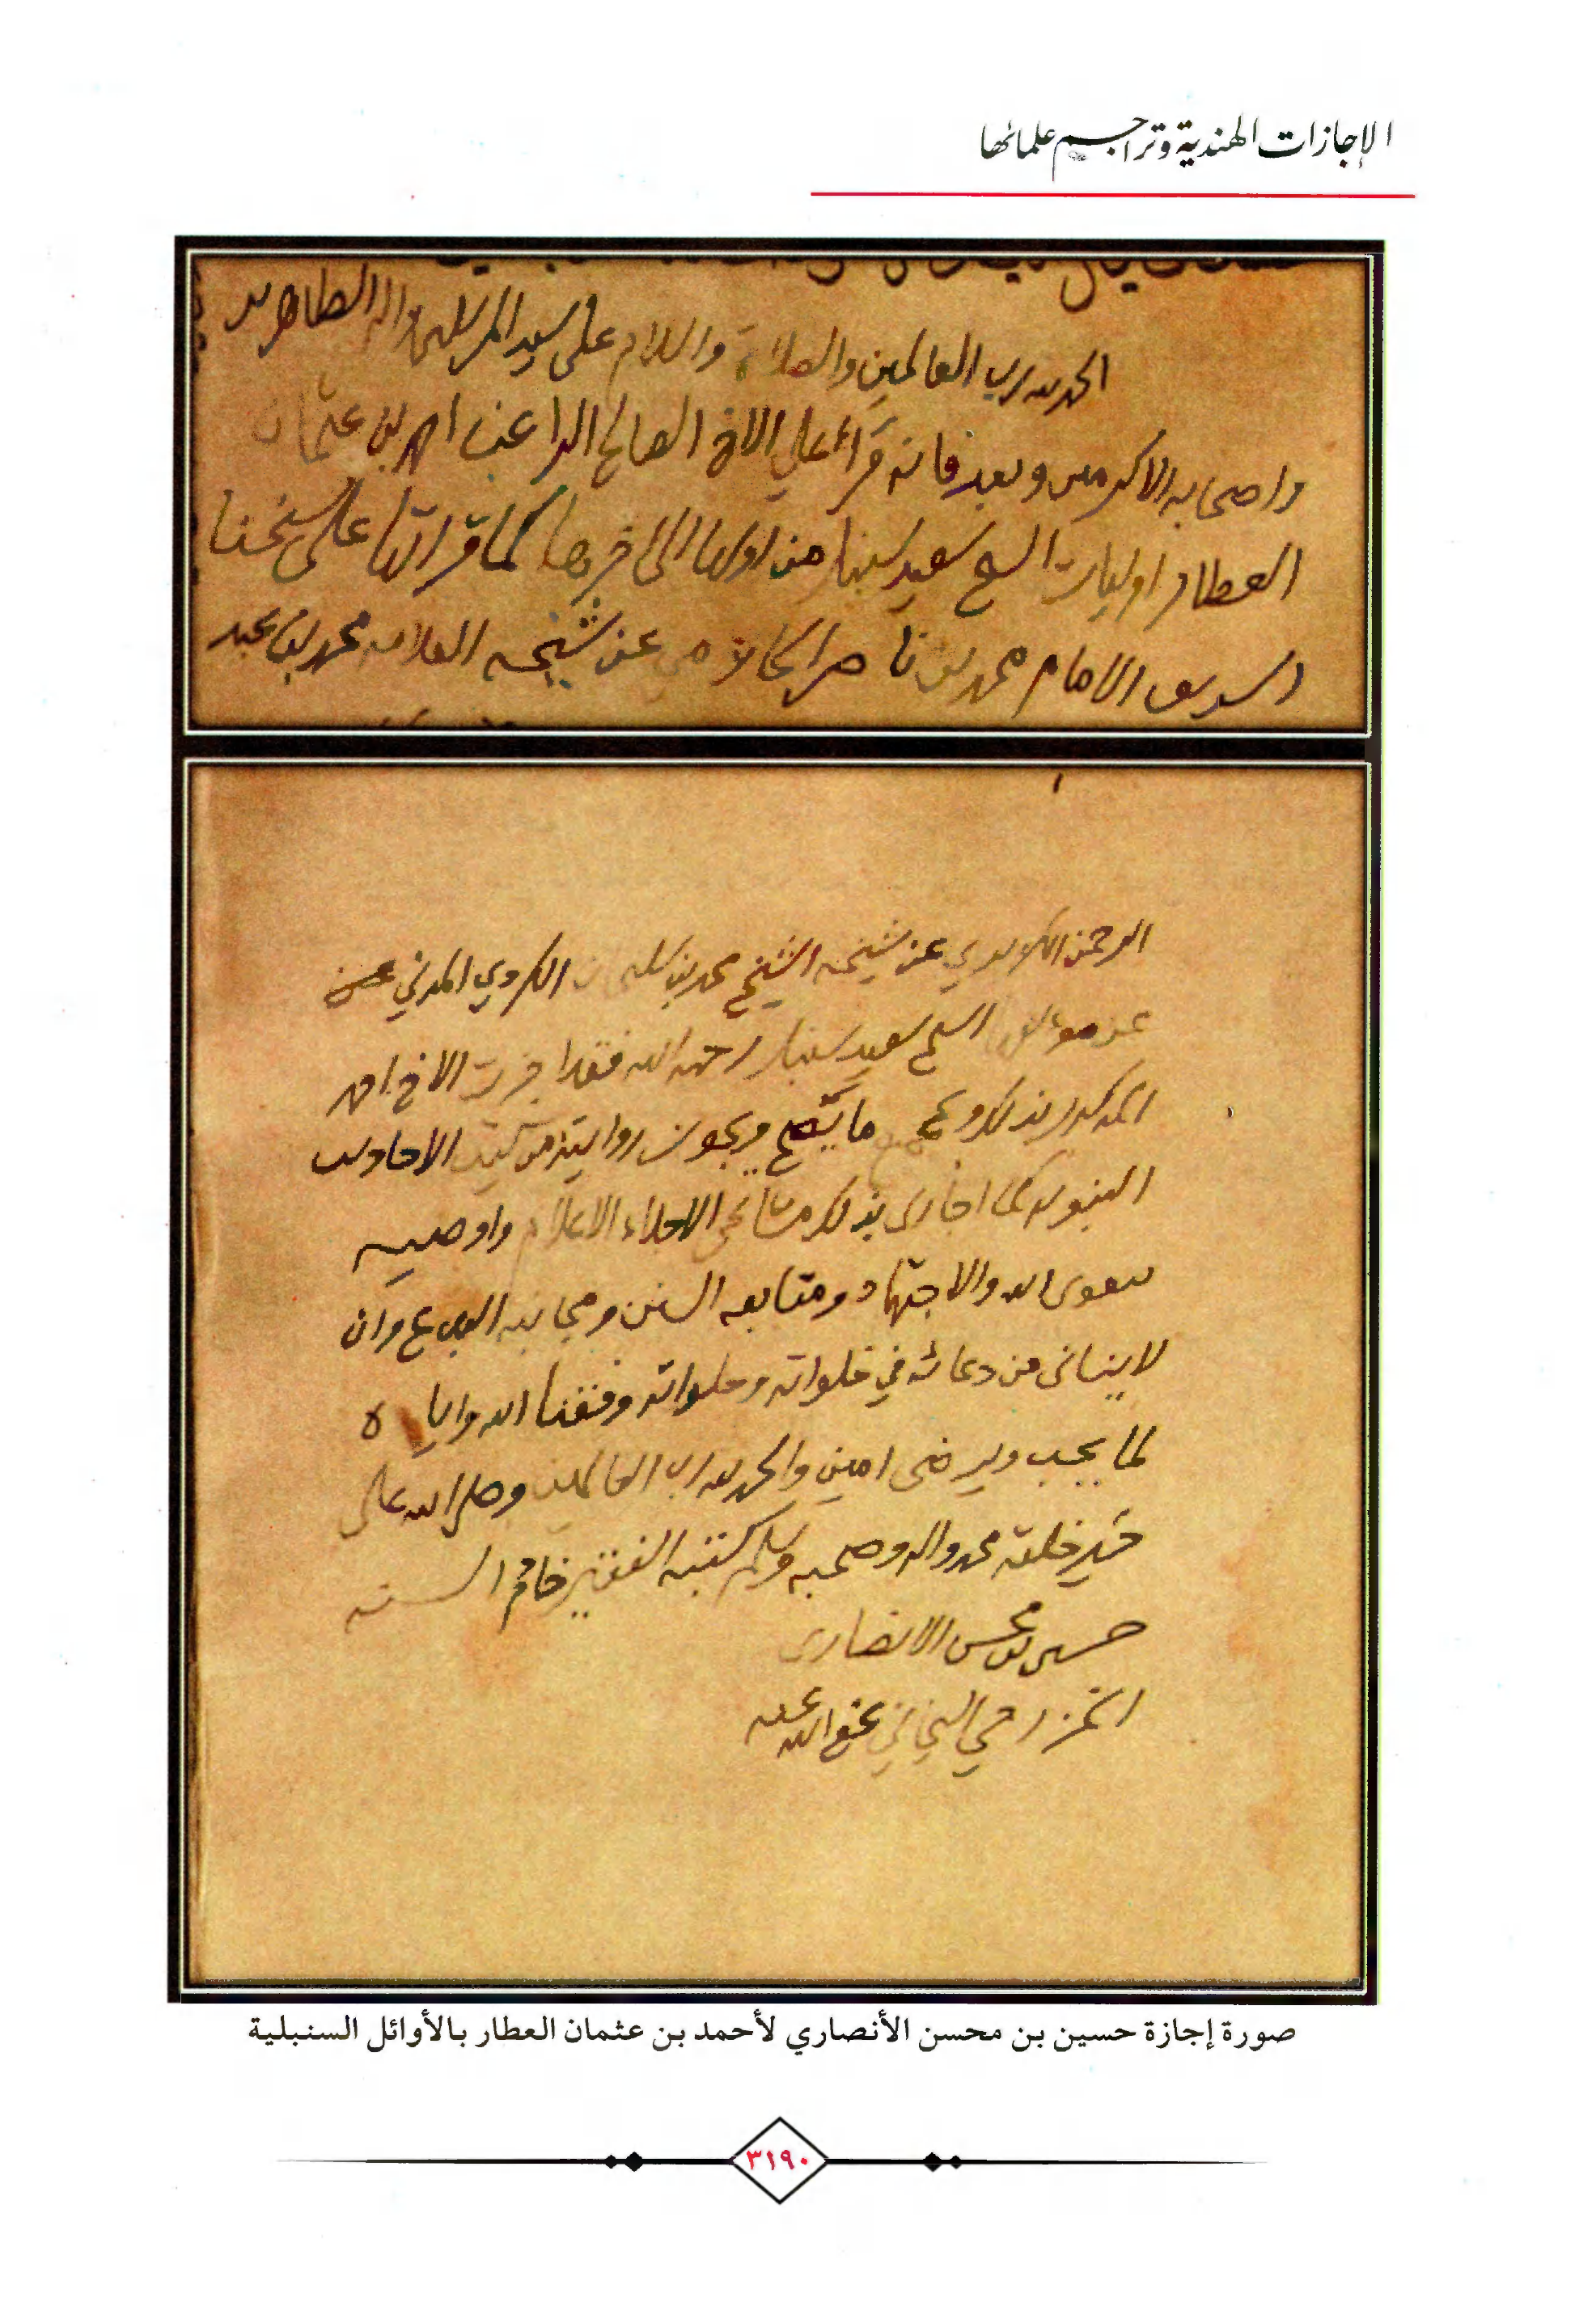 الإجازات الهندية وتراجم علمائها
الحمد لله رب العالمين والصلاة والسلام على سيد المرسلين واله الطاهرين
واصحابه الاكرمين وبعد فانه قرأ علي الاخ الصالح الراغب احمد بن عثمان
العطار اوليات الشيخ سعيد سنبل من اولها الى اخرها كما قراتها على شيخنا
الشريف الامام محمد بن ناصر الحازمي عن شيخه العلامه محمد بن عبد
الرحمن الكزبري عن شيخه الشيخ محمد بن سليمان الكردي المدني عن
عن مولفها الشيخ سعيد سنبل رحمه الله فقد اجزت الاخ احمد
المذكور بذلك وبجميع ما يصح ويجوز روايته من كتب الاحاديث
النبويه كما اجازني بذلك مشائخي الاجلاء الاعلام واوصيه
بتقوى الله والاجتهاد ومتابعه السنن ومجانبه البدع وان
لا ينساني من دعائه في خلواته وجلواته وفقنا الله واياه
لما يحب ويرضى امين والحمد لله رب العالمين وصلى الله على
خير خلقه محمد واله وصحبه وسلم كتبه الفقير خادم السنه
حسين بن محسن الانصاري
الخزرجي اليماني عفى الله عنه
صورة إجازة حسين بن محسن الأنصاري لأحمد بن عثمان العطار بالأوائل السنبلية
٣١٩٠